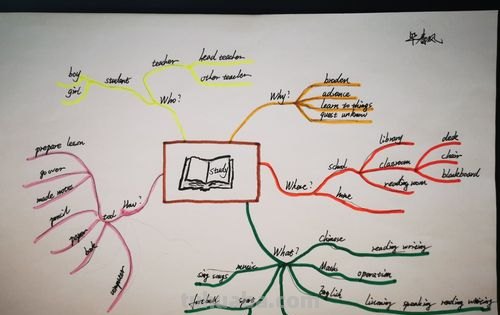 早春风
teacher
head teacher
other teacher
student
boy
girl
Who?
Why?
broaden
learn to things
study
Where?
school
library
classroom
desk
chair
blackboard
home
How?
tool
prepare lesson
go over
made notes
pencil
paper
book
computer
What?
Chinese
reading writing
Maths
operation
English
listening speaking reading writing
music
sing songs
football
sport